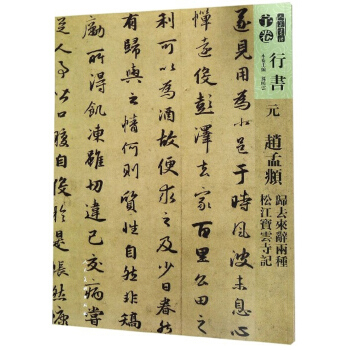 行書
元
趙孟頫
歸去來辭兩種
松江寶雲寺記
遂見用為小邑于時風波未息心
憚遠役彭澤去家百里公田之
利可以為酒故便求之及少日眷然
有歸與之情何則質性自然非矯
厲所得飢凍雖切違己交病嘗
人事皆口腹自役於是悵然慷